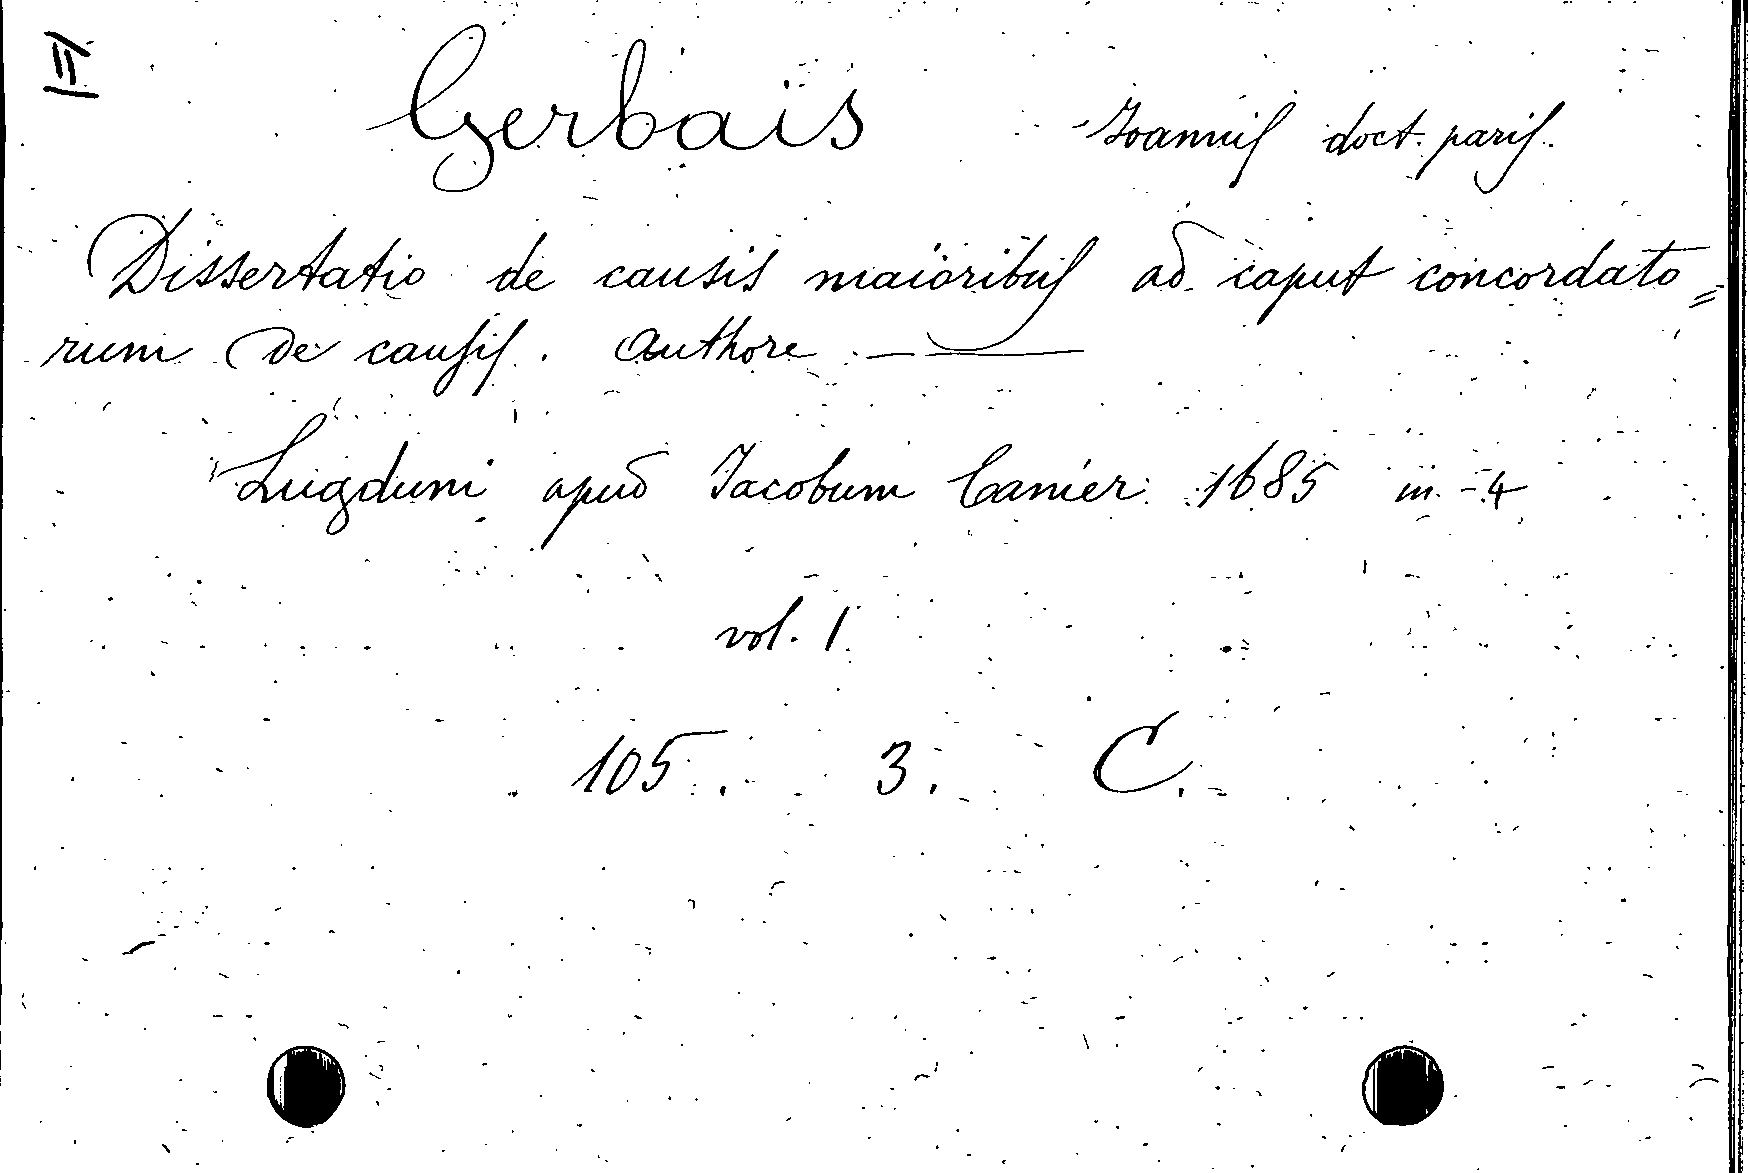 II
Gerbais Joannis doct. paris.
Dissertatio de causis maioribus ad caput concordato=
rum de causis. Authore ——
Lugduni apud Jacobum Canier 1685 in-4
vol. 1
105. 3. C.